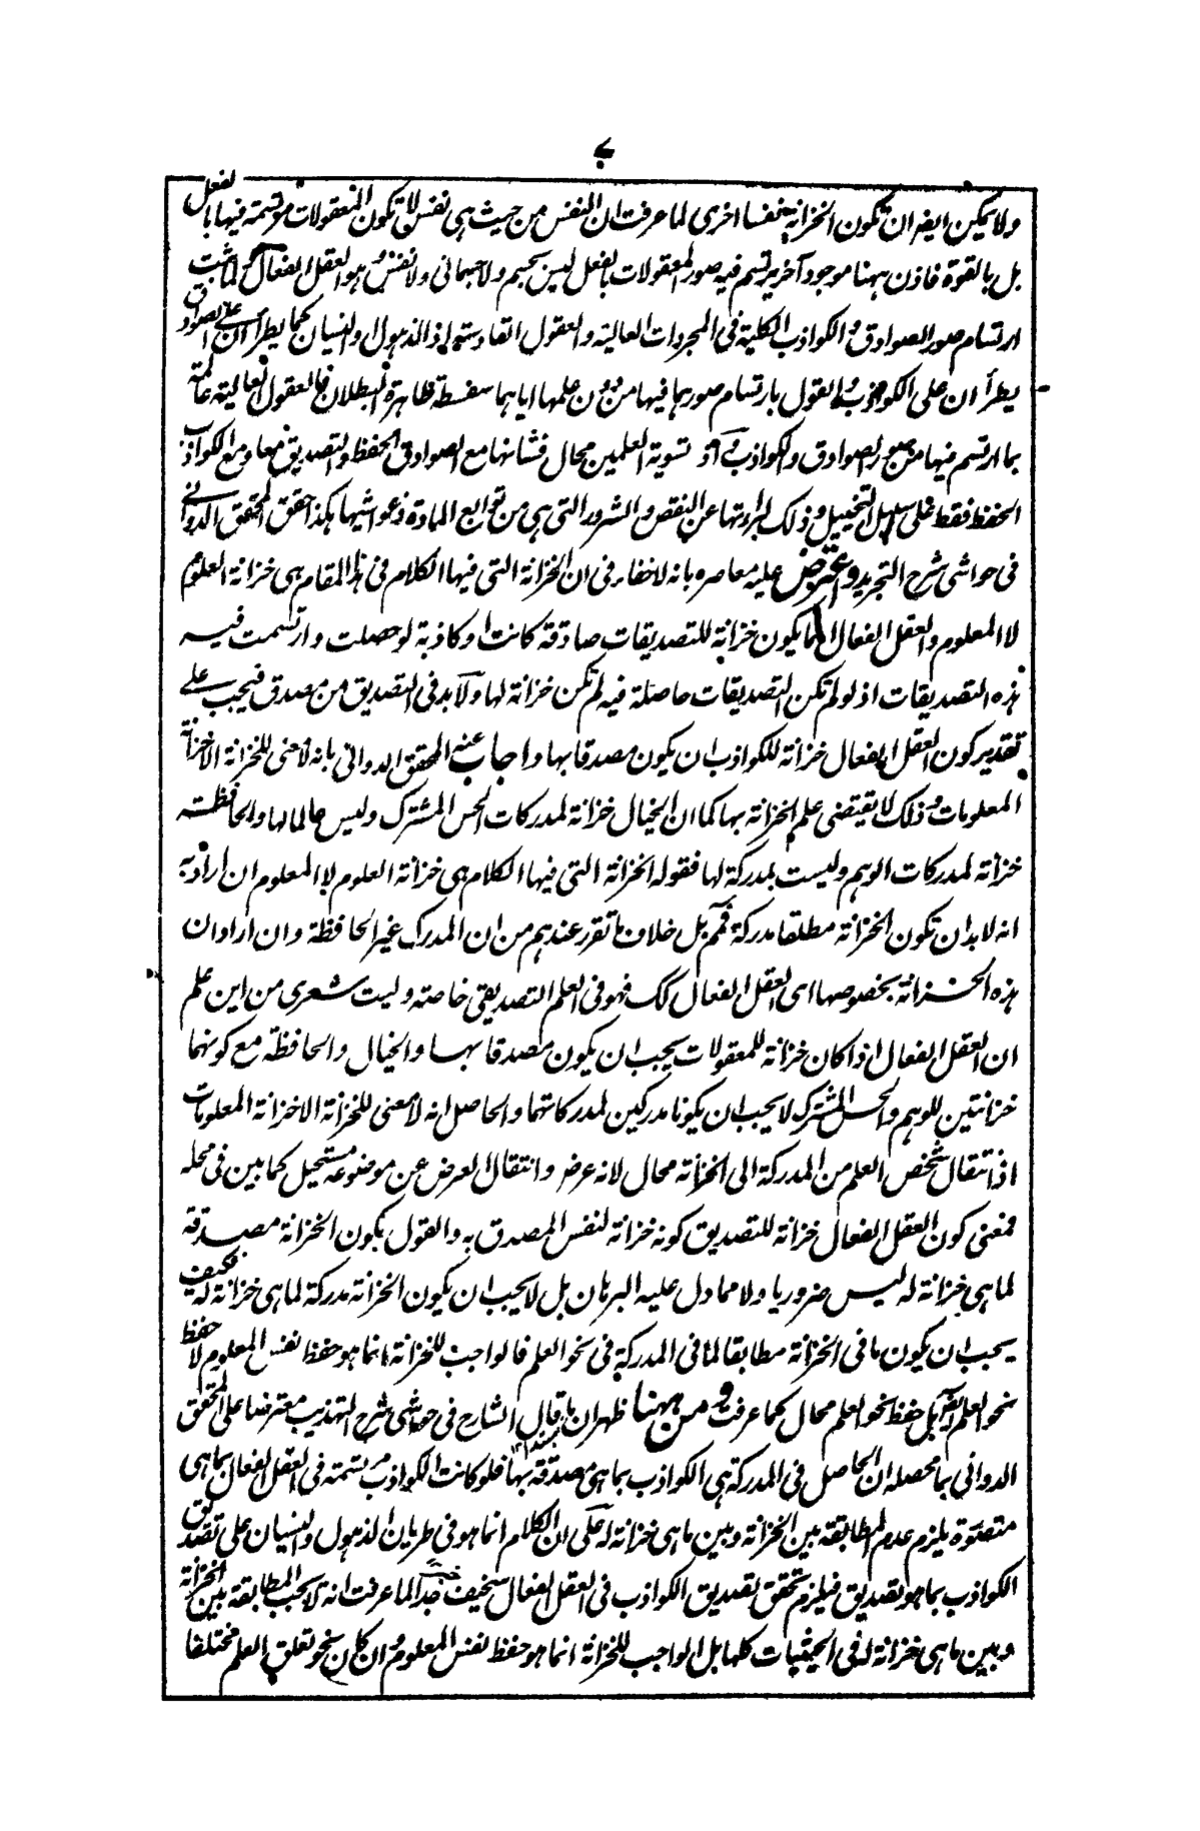 ولا يمكن ايضا ان تكون الخزانة نفسا اخرى لما عرفت ان النفس من حيث هى نفس لا تكون المعقولات مرتسمة فيها بالفعل
بل بالقوة فاذن ههنا موجود آخر يرتسم فيه صور المعقولات بالفعل ليس بجسم ولا جسمانى ولا نفس وهو العقل الفعال ثبت
ارتسام صور الصوادق والكواذب الكلية فى المجردات العالية والعقول القادسة اذ الذهول والنسيان كما يطرأن على الصوادق
يطرأ ان على الكواذب والقول بارتسام صورها فيها من دون علمها اياهما سفسطة ظاهرة البطلان فالعقول العالية عالمة
بما ارتسم فيها من صور الصوادق والكواذب تسوية العلمين محال فشانها مع الصوادق الحفظ والتصديق معا ومع الكواذب
الحفظ فقط على سبيل التخييل وذلك لبراءتها عن النقص والشرور التى هى من توابع المادة وغواشيها هكذا حقق المحقق الدوانى
فى حواشى شرح التجريد واعترض عليه معاصره بانه لا خفاء فى ان الخزانة التى فيها الكلام فى هذا المقام هى خزانة العلوم
لا المعلوم والعقل الفعال انما يكون خزانة للتصديقات صادقة كانت او كاذبة لو حصلت وارتسمت فيه
هذه التصديقات اذ لو لم تكن التصديقات حاصلة فيه لم تكن خزانة لها ولا بد فى التصديق من مصدق فيجب على
تقدير كون العقل الفعال خزانة للكواذب ان يكون مصدقا بها واجاب عنه المحقق الدوانى بانه لا معنى للخزانة الا خزانة
المعلومات وذلك لا يقتضى علم الخزانة بها كما ان الخيال خزانة لمدركات الحس المشترك وليس عالما لها والحافظة
خزانة لمدركات الوهم وليست بمدركة لها فقوله الخزانة التى فيها الكلام هى خزانة العلوم لا المعلوم ان اراد به
انه لا بد ان تكون الخزانة مطلقا مدركة فمم بل خلاف ما تقرر عندهم من ان المدرك غير الحافظة وان اراد ان
هذه الخزانة بخصوصها اى العقل الفعال كك فهو فى العلم التصديقى خاصة وليت شعرى من اين علم
ان العقل الفعال اذا كان خزانة للمعقولات يجب ان يكون مصدقا بها والخيال والحافظة مع كونهما
خزانتين للوهم والحس المشترك لا يجب ان يكونا مدركين لمدركاتهما والحاصل انه لا معنى للخزانة الا خزانة المعلومات
اذ انتقال شخص العلم من المدركة الى الخزانة محال لانه عرض وانتقال العرض عن موضوعه مستحيل كما بين فى محله
فمعنى كون العقل الفعال خزانة للتصديق كونه خزانة لنفس المصدق به والقول بكون الخزانة مصدقة
لما هى خزانة له ليس ضروريا ولا مما دل عليه البرهان بل لا يجب ان يكون الخزانة مدركة لما هى خزانة له فكيف
يجب ان يكون ما فى الخزانة مطابقا لما فى المدركة فى نحو العلم فالواجب للخزانة انما هو حفظ نفس المعلوم لا حفظ
نحو العلم ايضا بل حفظ نحو العلم محال كما عرفت ومن ههنا ظهر ان ما قال الشارح فى حواشى شرح التهذيب معترضا على المحقق
الدوانى بما محصله ان الحاصل فى المدركة هى الكواذب بما هى مصدقة بها فلو كانت الكواذب مرتسمة فى العقل الفعال بما هى
متصورة يلزم عدم المطابقة بين الخزانة وبين ما هى خزانة له على ان الكلام انما هو فى طريان الذهول والنسيان على تصديق
الكواذب بما هو تصديق فيلزم تحقق تصديق الكواذب فى العقل الفعال سخيف جدا لما عرفت انه لا يجب المطابقة بين الخزانة
وبين ما هى خزانة له فى الحيثيات كلها بل الواجب للخزانة انما هو حفظ نفس المعلوم وان كان نحو تعلق العلم مختلفا